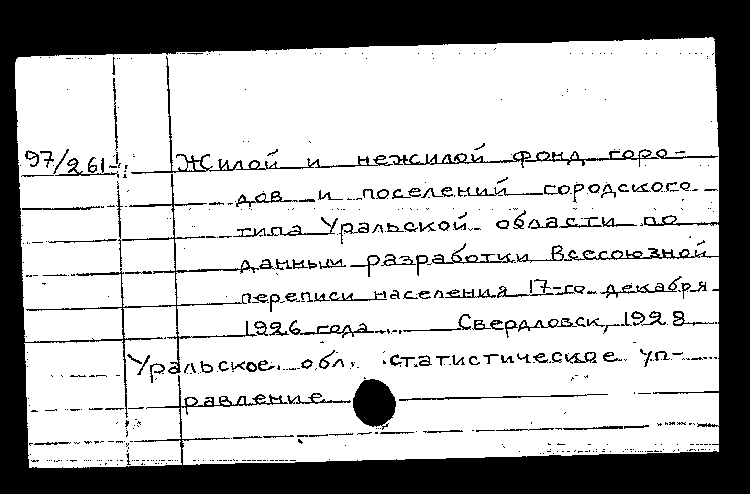 97/261- Жилой и нежилой фонд горо-
дов и поселений городского
типа Уральской области по
данным разработки Всесоюзной
переписи населения 17-го декабря
1926 года... Свердловск, 1928
Уральское обл. статистическое уп-
равление